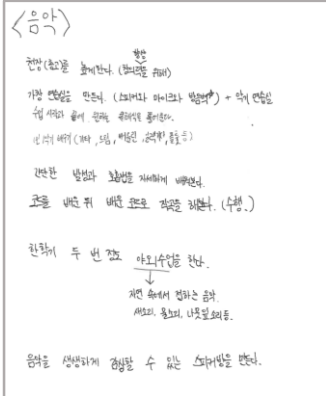 <음악>
향상
천장(층고)를 높게한다. (창의력을 위해)
가창 연습실을 만든다. (스피커와 마이크와 방음벽) + 악기 연습실
수업 시작과 끝에 노래를 틀어준다.
악기 배우기 (기타, 드럼, 바이올린, 등)
간단한 발성과 호흡법을 자세하게 배워본다.
코드를 배운 뒤 배운 코드로 작곡을 해본다. (수행.)
한학기 두 번 정도 야외수업을 한다.
자연 속에서 접하는 음악.
새소리, 물소리, 나뭇잎소리 등.
음악을 생생하게 감상할 수 있는 스피커방을 만든다.